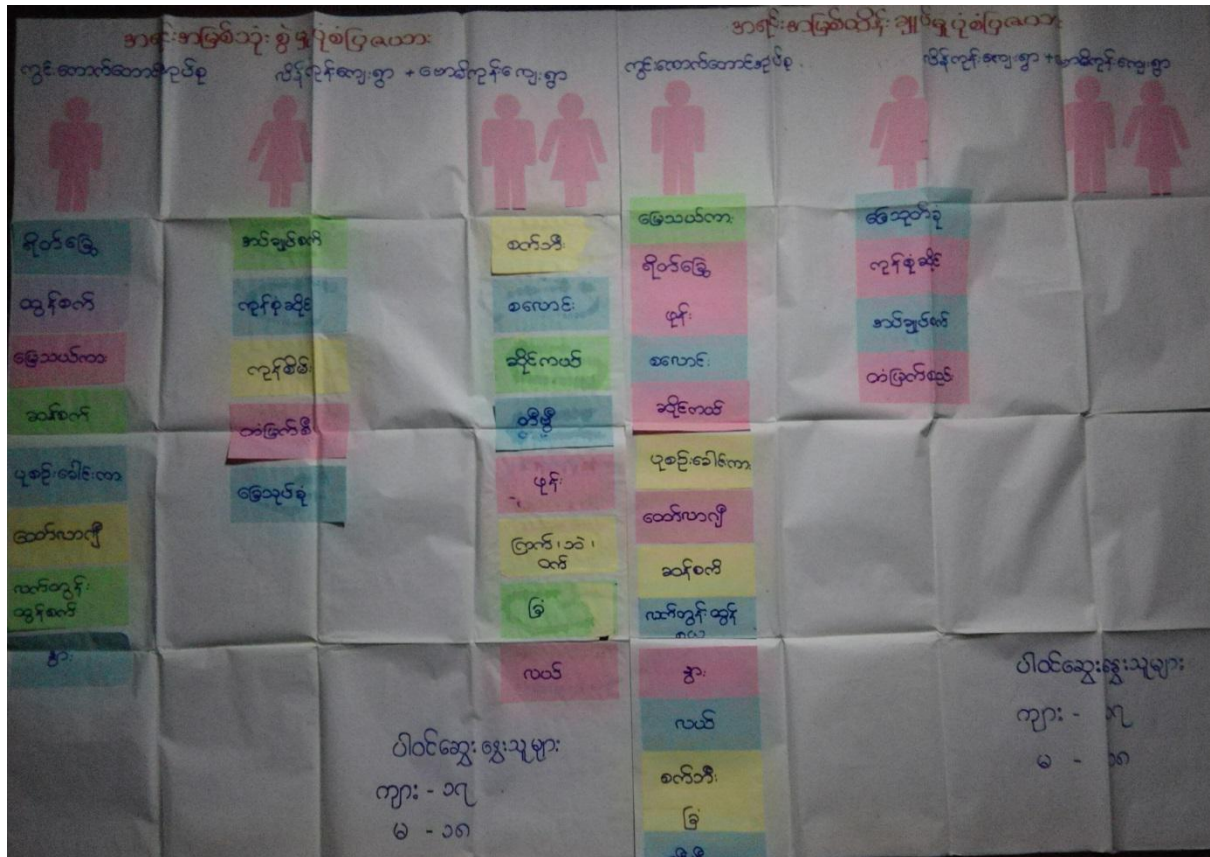 အရင်းအမြစ်သုံးစွဲမှုပုံစံပြဇယား
ကွင်းထောက်တောင်အုပ်စု လိန်ကုန်ကျေးရွာ + ဗောဓိကုန်ကျေးရွာ
ရိတ်ခြွေ
ထွန်စက်
မြေသယ်ကား
ဆန်စက်
ပုစဉ်းခေါင်းကား
ထော်လာဂျီ
လက်တွန်း
ထွန်စက်
နွား
အပ်ချုပ်စက်
ကုန်စုံဆိုင်
ကုန်စိမ်း
တံမြက်စီး
မြေသုပ်စုံ
စက်ဘီး
စလောင်း
ဆိုင်ကယ်
တီဗွီ
ဖုန်း
ကြက်၊ ဘဲ၊
ဝက်
ခြံ
လယ်
ပါဝင်ဆွေးနွေးသူများ
ကျား - ၁၇
မ - ၁၈
အရင်းအမြစ်ထိန်းချုပ်မှုပုံစံပြဇယား
ကွင်းထောက်တောင်အုပ်စု လိန်ကုန်ကျေးရွာ + ဗောဓိကုန်ကျေးရွာ
မြေသယ်ကား
ရိတ်ခြွေ
ဖုန်း
စလောင်း
ဆိုင်ကယ်
ပုစဉ်းခေါင်းကား
ထော်လာဂျီ
ဆန်စက်
လက်တွန်းထွန်
နွား
လယ်
စက်ဘီး
ခြံ
ကုန်စုံဆိုင်
အပ်ချုပ်စက်
တံမြက်စည်း
ပါဝင်ဆွေးနွေးသူများ
ကျား - ၁၇
မ - ၁၈